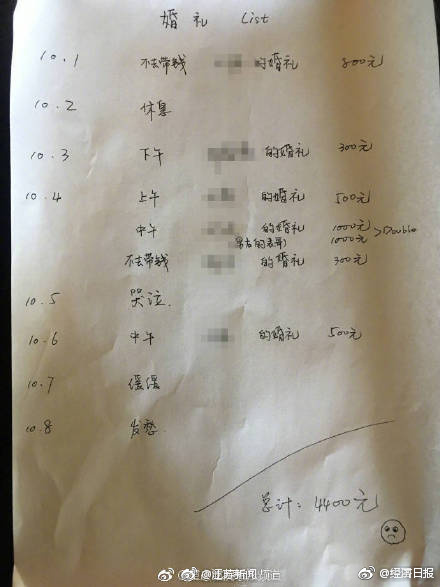 婚礼 List
10.1 不去带钱 的婚礼 800元
10.2 休息
10.3 下午 的婚礼 300元
10.4 上午 的婚礼 500元
中午 的婚礼 1000元
1000元 >Double
不去带钱 的婚礼 300元
10.5 哭泣.
10.6 中午 的婚礼 500元
10.7 缓缓
10.8 发愁.
总计: 4400元
@江苏新闻
@经济日报